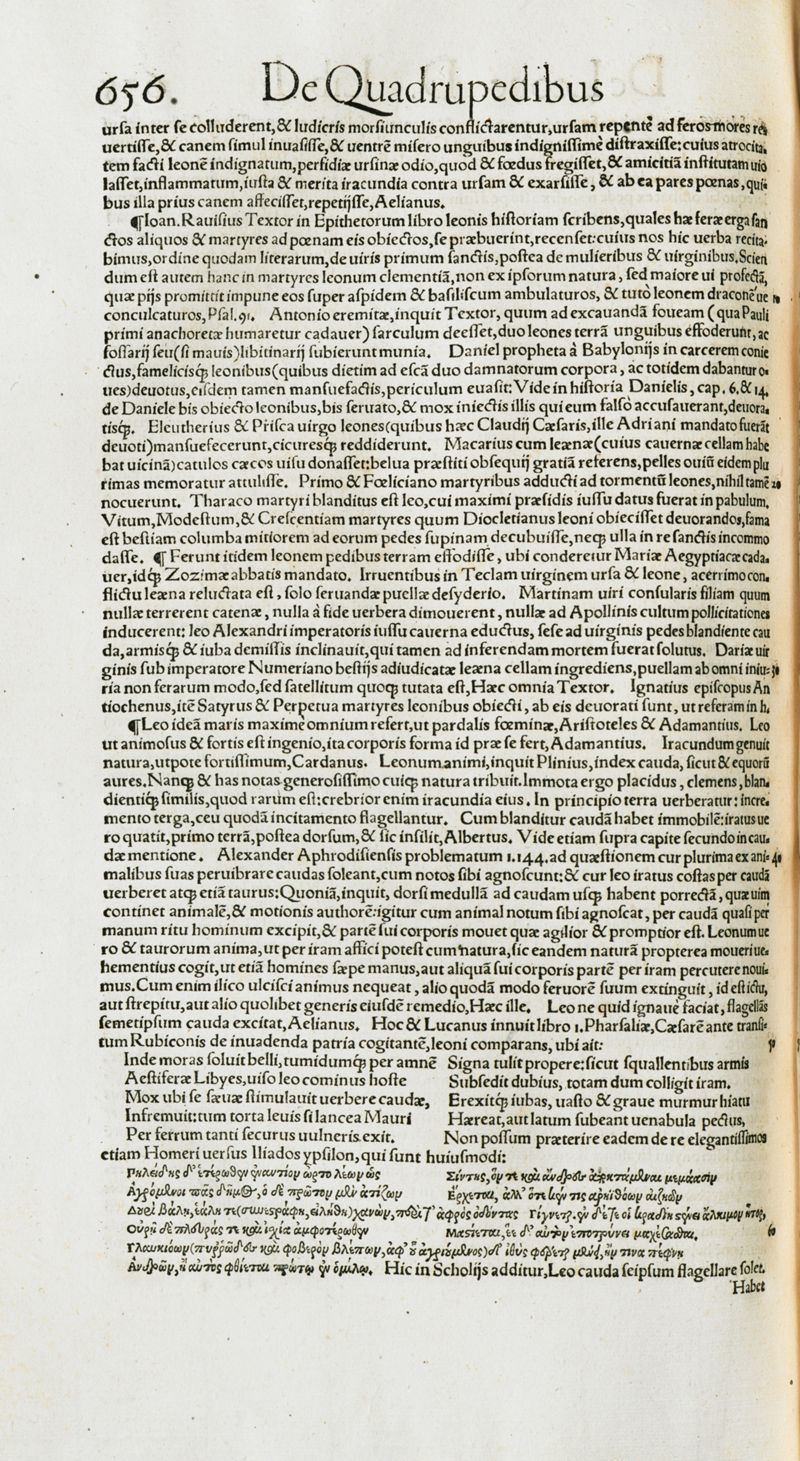 656. De Quadrupedibus
ursa inter se colluderent, & ludicris morsiunculis conflictarentur, ursam repente ad feros mores re
uertisse, & canem simul inuasisse, & uentrē misero unguibus indignissime distraxisse: cuius atrocita,
tem facti leonē indignatum, perfidiæ ursinæ odio, quod & fœdus fregisset, & amicitiā institutam uio
lasset, inflammatum, iusta & merita iracundia contra ursam & exarsisse, & ab ea pares pœnas, qui
bus illa prius canem affecisset, repetijsse, Aelianus.
¶ Ioan. Rauisius Textor in Epithetorum libro leonis historiam scribens, quales hæ feræ erga san
ctos aliquos & martyres ad pœnam eis obiectos, se præbuerint, recenset: cuius nos hic uerba recita,
bimus, ordine quodam literarum, de uiris primum sanctis, postea de mulieribus & uirginibus. Scien
dum est autem hanc in martyres leonum clementiā, non ex ipsorum natura, sed maiore ui profectā,
quæ pijs promittit impune eos super aspidem & basiliscum ambulaturos, & tutò leonem draconē ue 10
conculcaturos, Psal. 91. Antonio eremitæ, inquit Textor, quum ad excauandā foueam (qua Pauli
primi anachoretæ humaretur cadauer) sarculum deesset, duo leones terrā unguibus effoderunt, ac
fossarij seu (si mauis) libitinarij subierunt munia. Daniel propheta à Babylonijs in carcerem conie
ctus, famelicisq; leonibus (quibus dietim ad escā duo damnatorum corpora, ac totidem dabantur o-
ues) deuotus, eisdem tamen mansuefactis, periculum euasit: Vide in historia Danielis, cap. 6. & 14.
de Daniele bis obiecto leonibus, bis seruato, & mox iniectis illis qui eum falsò accusauerant, deuora,
tisq;. Eleutherius & Prisca uirgo leones (quibus hæc Claudij Cæsaris, ille Adriani mandato fuerāt
deuoti) mansuefecerunt, cicuresq; reddiderunt. Macarius cum leænæ (cuius cauernæ cellam habe
bat uicinā) catulos cæcos uisu donasset: belua præstiti obsequij gratiā referens, pelles ouiū eidem plu
rimas memoratur attulisse. Primo & Fœliciano martyribus adducti ad tormentū leones, nihil tamē 20
nocuerunt. Tharaco martyri blanditus est leo, cui maximi præsidis iussu datus fuerat in pabulum.
Vitum, Modestum, & Crescentiam martyres quum Diocletianus leoni obiecisset deuorandos, fama
est bestiam columba mitiorem ad eorum pedes supinam decubuisse, neq; ulla in re sanctis incommo
dasse. ¶ Ferunt itidem leonem pedibus terram effodisse, ubi conderetur Mariæ Aegyptiacæ cada,
uer, idq; Zozimæ abbatis mandato. Irruentibus in Teclam uirginem ursa & leone, acerrimo con,
flictu leæna reluctata est, solo seruandæ puellæ desyderio. Martinam uiri consularis filiam quum
nullæ terrerent catenæ, nulla à fide uerbera dimouerent, nullæ ad Apollinis cultum pollicitationes
inducerent: leo Alexandri imperatoris iussu cauerna eductus, sese ad uirginis pedes blandiente cau
da, armisq; & iuba demissis inclinauit, qui tamen ad inferendam mortem fuerat solutus. Dariæ uir
ginis sub imperatore Numeriano bestijs adiudicatæ leæna cellam ingrediens, puellam ab omni iniu- 30
ria non ferarum modo, sed satellitum quoq; tutata est, Hæc omnia Textor. Ignatius episcopus An
tiochenus, itē Satyrus & Perpetua martyres leonibus obiecti, ab eis deuorati sunt, ut referam in h.
¶ Leo ideā maris maxime omnium refert, ut pardalis fœminæ, Aristoteles & Adamantius. Leo
ut animosus & fortis est ingenio, ita corporis forma id præ se fert, Adamantius. Iracundum genuit
natura, utpote fortissimum, Cardanus. Leonum animi, inquit Plinius, index cauda, sicut & equorū
aures. Nanq; & has notas generosissimo cuiq; natura tribuit. Immota ergo placidus, clemens, blan,
dientiq; similis, quod rarum est: crebrior enim iracundia eius. In principio terra uerberatur: incre,
mento terga, ceu quodā incitamento flagellantur. Cum blanditur caudā habet immobilē: iratus ue
ro quatit, primo terrā, postea dorsum, & sic insilit, Albertus. Vide etiam supra capite secundo in cau,
dæ mentione. Alexander Aphrodisiensis problematum 1.144. ad quæstionem cur plurima ex ani- 40
malibus suas peruibrare caudas soleant, cum notos sibi agnoscunt: & cur leo iratus costas per caudā
uerberet atq; etiā taurus: Quoniā, inquit, dorsi medullā ad caudam usq; habent porrectā, quæ uim
continet animalē, & motionis authorē: igitur cum animal notum sibi agnoscat, per caudā quasi per
manum ritu hominum excipit, & partē sui corporis mouet quæ agilior & promptior est. Leonum ue
ro & taurorum anima, ut per iram affici potest cum natura, sic eandem naturā propterea moueri ue,
hementius cogit, ut etiā homines sæpe manus, aut aliquā sui corporis partē per iram percutere noui,
mus. Cum enim ilico ulcisci animus nequeat, alio quodā modo feruorē suum extinguit, id est ictu,
aut strepitu, aut alio quolibet generis eiusdē remedio, Hæc ille. Leo ne quid ignaue faciat, flagellās
semetipsum cauda excitat, Aelianus. Hoc & Lucanus innuit libro 1. Pharsaliæ, Cæsarē ante transi-
tum Rubiconis de inuadenda patria cogitantē, leoni comparans, ubi ait:
Inde moras soluit belli, tumidumq; per amnē Signa tulit propere: sicut squallentibus armis
Aestiferæ Libyes, uiso leo cominus hoste Subsedit dubius, totam dum colligit iram.
Mox ubi se sæuæ stimulauit uerbere caudæ, Erexitq; iubas, uasto & graue murmur hiatu
Infremuit: tum torta leuis si lancea Mauri Hæreat, aut latum subeant uenabula pectus,
Per ferrum tanti securus uulneris exit. Non possum præterire eadem de re elegantissimos
etiam Homeri uersus Iliados ypsilon, qui sunt huiusmodi:
Πηλείδης δ' ἑτέρωθεν ἐναντίον ὦρτο λέων ὣς Σίντης, ὅν τε καὶ ἄνδρες ἀποκτάμεναι μεμάασιν
Ἀγρόμενοι πᾶς δῆμος, ὁ δὲ πρῶτον μὲν ἀτίζων Ἔρχεται, ἀλλ' ὅτε κέν τις ἀρηϊθόων αἰζηῶν
Δουρὶ βάλῃ, ἐάλη τε (συνεστράφη, εἰλήθη) χανών, περὶ τ' ἀφρὸς ὀδόντας Γίγνετ. ἐν δέ τε οἱ κραδίῃ στένει ἄλκιμον ἦτορ,
Οὐρῇ δὲ πλευράς τε καὶ ἰσχία ἀμφοτέρωθεν Μαστίεται, ἑὲ δ' αὐτὸν ἐποτρύνει μαχέσασθαι. 60
Γλαυκιόων (πυρῶδες καὶ φοβερὸν βλέπων, ἀφ' οὗ ἀγριόμενος) δ' ἰθὺς φέρεται μένει, ἤν τινα πέφνῃ
Ἀνδρῶν, ἢ αὐτὸς φθίεται πρώτῳ ἐν ὁμίλῳ. Hic in Scholijs additur, Leo cauda seipsum flagellare solet.
Habet